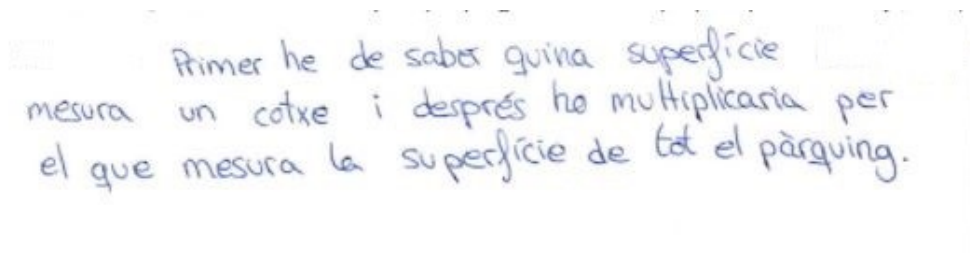 Primer he de saber quina superfície
mesura un cotxe i després ho multiplicaria per
el que mesura la superfície de tot el pàrquing.